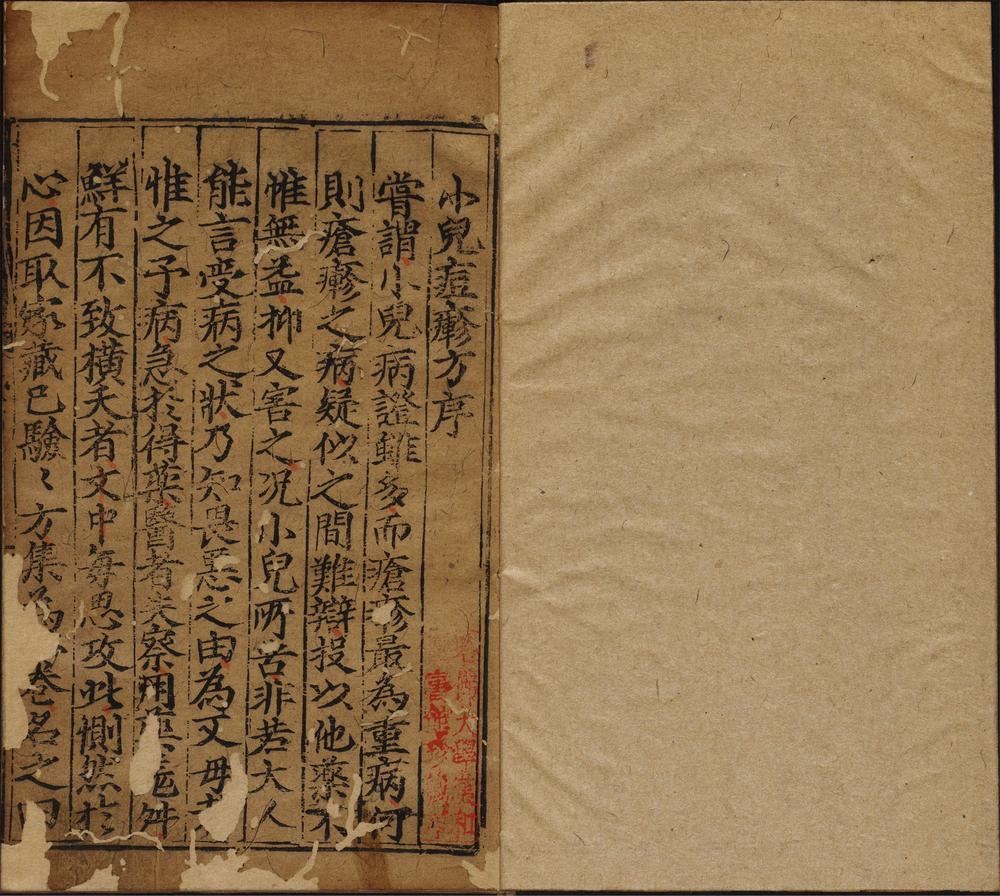 小兒痘瘮方序
嘗謂小兒病證雖多而瘡疹最為重病何
則瘡瘮之病疑似之間難辯投以他藥不
惟無益抑又害之况小兒所苦非若大人
能言受病之狀乃知畏惡之由為父毋
惟之子病急於得藥醫者失察用藥差舛
鮮有不致横夭者文中每思攻此惻然於
心因取家藏已驗〻方集為卷名之曰